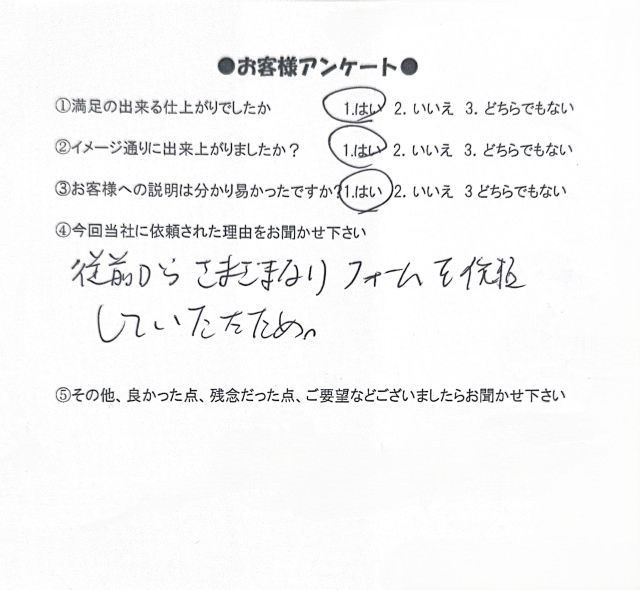 ●お客様アンケート●
①満足の出来る仕上がりでしたか 1.はい 2. いいえ 3. どちらでもない
②イメージ通りに出来上がりましたか？ 1.はい 2. いいえ 3. どちらでもない
③お客様への説明は分かり易かったですか？ 1.はい 2. いいえ 3 どちらでもない
④今回当社に依頼された理由をお聞かせ下さい
従前からさまざまなリフォームを依頼
していたため。
⑤その他、良かった点、残念だった点、ご要望などございましたらお聞かせ下さい